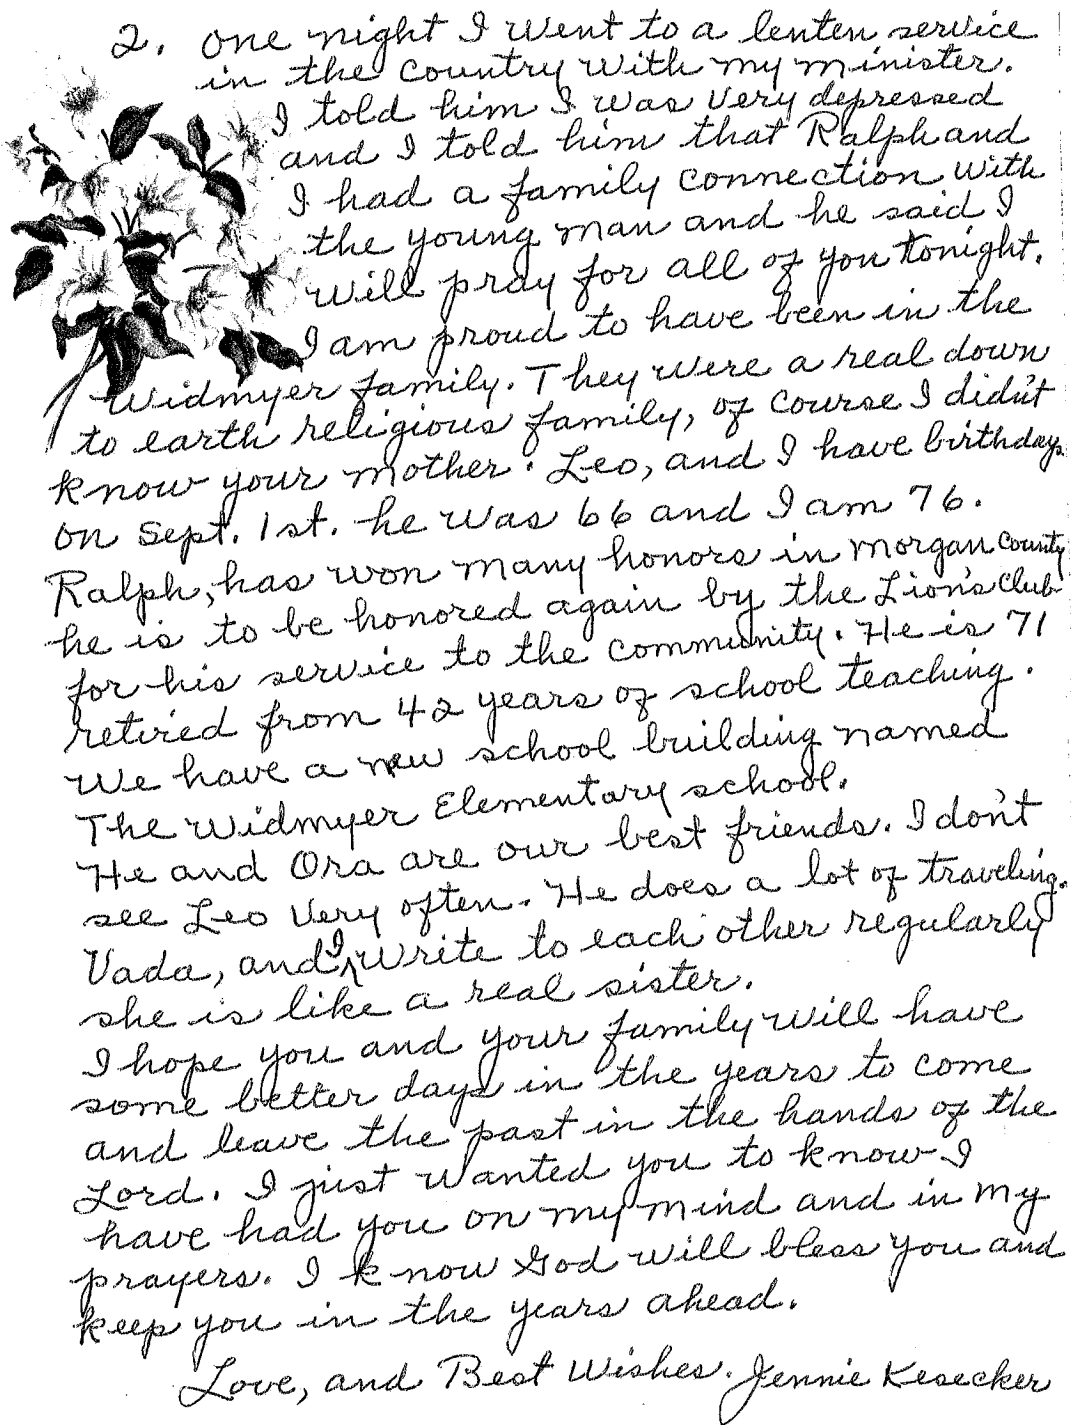 2. One night I went to a lenten service
in the country with my minister.
I told him I was very depressed
and I told him that Ralph and
I had a family connection with
the young man and he said I
will pray for all of you tonight.
I am proud to have been in the
Widmyer family. They were a real down
to earth religious family, of course I didn't
know your mother. Leo, and I have birthdays
on Sept. 1st. he was 66 and I am 76.
Ralph, has won many honors in Morgan County
he is to be honored again by the Lion's Club
for his service to the community. He is 71
retired from 42 years of school teaching.
We have a new school building named
The Widmyer Elementary school.
He and Ora are our best friends. I don't
see Leo very often. He does a lot of traveling.
Vada, and I write to each other regularly
she is like a real sister.
I hope you and your family will have
some better days in the years to come
and leave the past in the hands of the
Lord. I just wanted you to know I
have had you on my mind and in my
prayers. I know God will bless you and
keep you in the years ahead.
Love, and Best Wishes. Jennie Kesecker